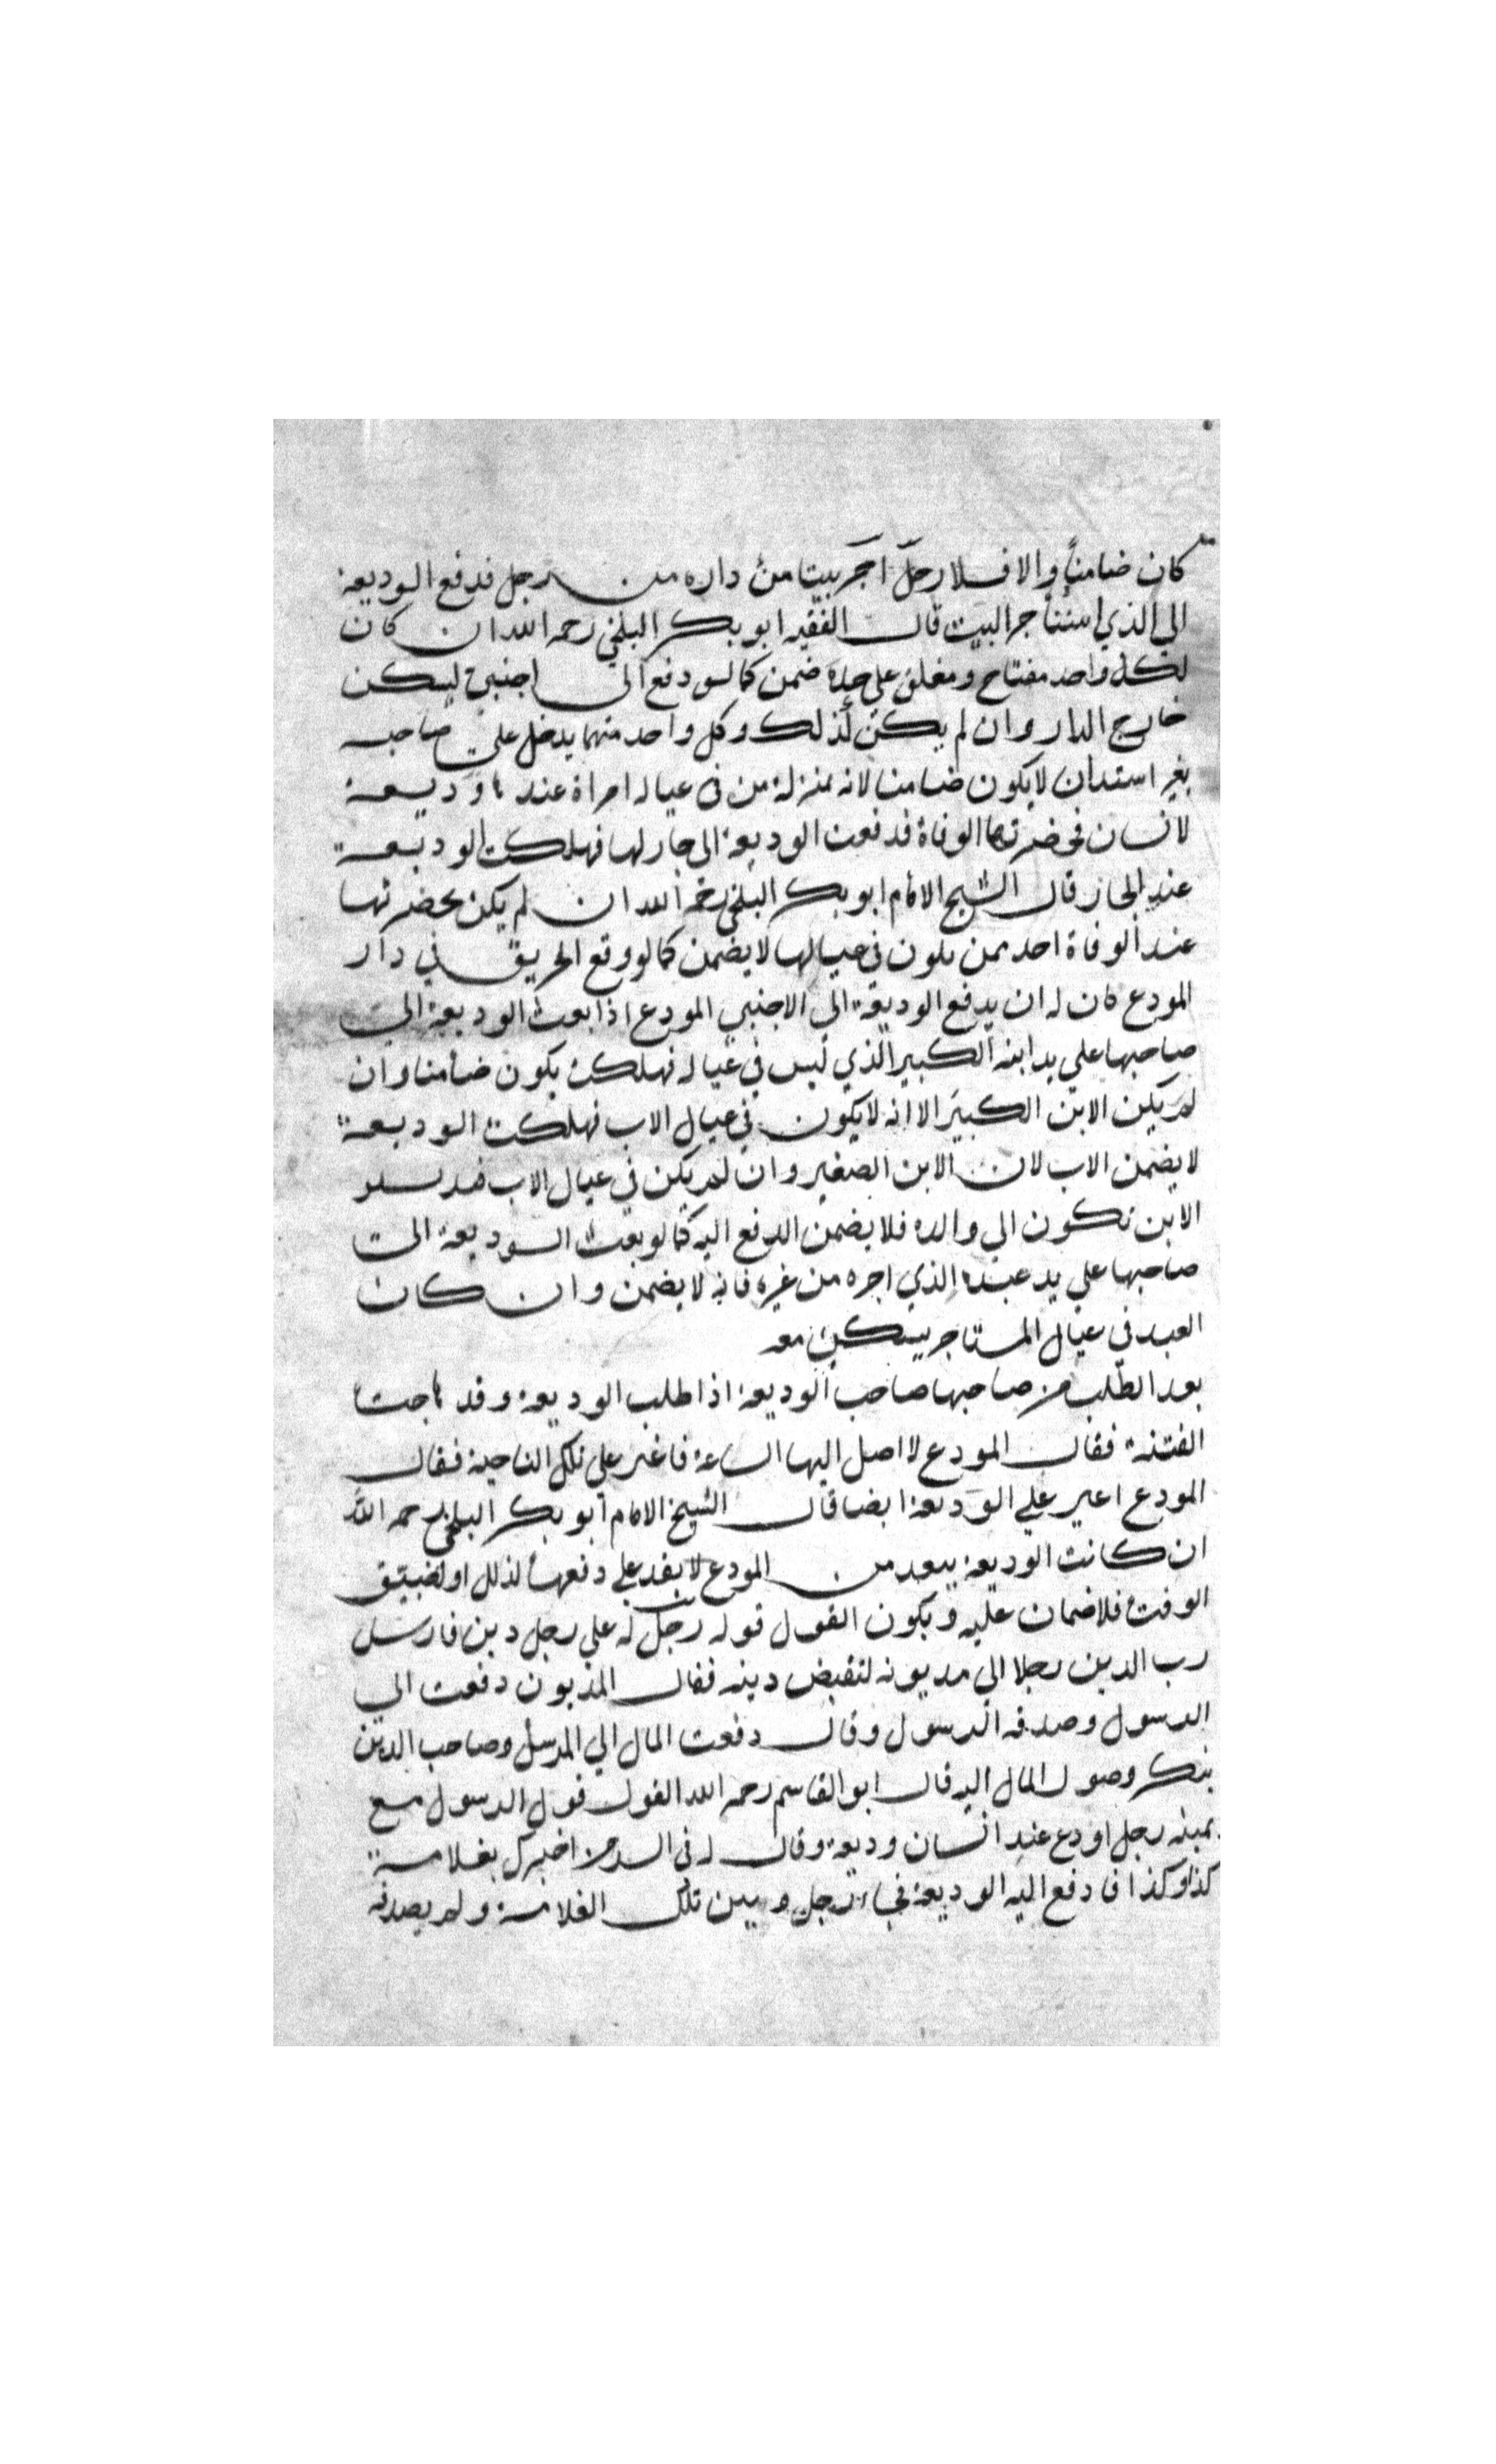 كان ضامناً والا فلا رجل آجر بيتا من داره من رجل فدفع الوديعة
الي الذي استأجر البيت قال الفقيه ابو بكر البلخي رحمه الله ان كان
لكل واحد مفتاح ومغلق علي حدة ضمن كما لو دفع الى اجنبي ليسكن
خارج الدار وان لم يكن كذلك وكل واحد منهما يدخل علي صاحبه
بغير استئذان لا يكون ضامنا لانه بمنزلة من في عياله امراة عندها وديعة
لانسان فحضرتها الوفاة فدفعت الوديعة الى جار لها فهلكت الوديعة
عند الجار قال الشيخ الامام ابو بكر البلخي رحمه الله ان لم يكن بحضرتها
عند الوفاة احد ممن يكون في عيالها لا يضمن كما لو وقع الحريق في دار
المودع كان له ان يدفع الوديعة الى الاجنبي المودع اذا بعث الوديعة الي
صاحبها علي يد ابنه الكبير الذي ليس في عياله فهلكت يكون ضامنا وان
لم يكن الابن الكبير الا انه لا يكون في عيال الاب فهلكت الوديعة
لا يضمن الاب لان الابن الصغير وان لم يكن في عيال الاب
الابن تكون الي والده فلا يضمن الدفع اليه كما لو بعث الوديعة الى
صاحبها علي يد عبده الذي اجره من غيره فانه لا يضمن وان كان
العبد في عيال المستاجر يسكن معه
بعد الطلب من صاحبها صاحب الوديعة اذا طلب الوديعة وقد هاجت
الفتنة فقال المودع لا اصل اليها الساعة فاغير علي تلك الناحية فقال
المودع اغير علي الوديعة ايضا قال الشيخ الامام ابو بكر البلخي رحمه الله
ان كانت الوديعة ببعد من المودع لا يقدر علي دفعها لذلك او لضيق
الوقت فلا ضمان عليه ويكون القول قوله رجل له علي رجل دين فارسل
رب الدين رجلا الي مديونه لتقبض دينه فقال المديون دفعت الى
الرسول وصدقه الرسول وقال دفعت المال الي المرسل وصاحب الدين
ينكر وصول المال اليه قال ابو القاسم رحمه الله القول قول الرسول مع
يمينه رجل اودع عند انسان وديعة وقال له في السر من اخبرك بعلامة
كذا وكذا فادفع اليه الوديعة فجاء رجل وبين تلك العلامة ولم يصدقه